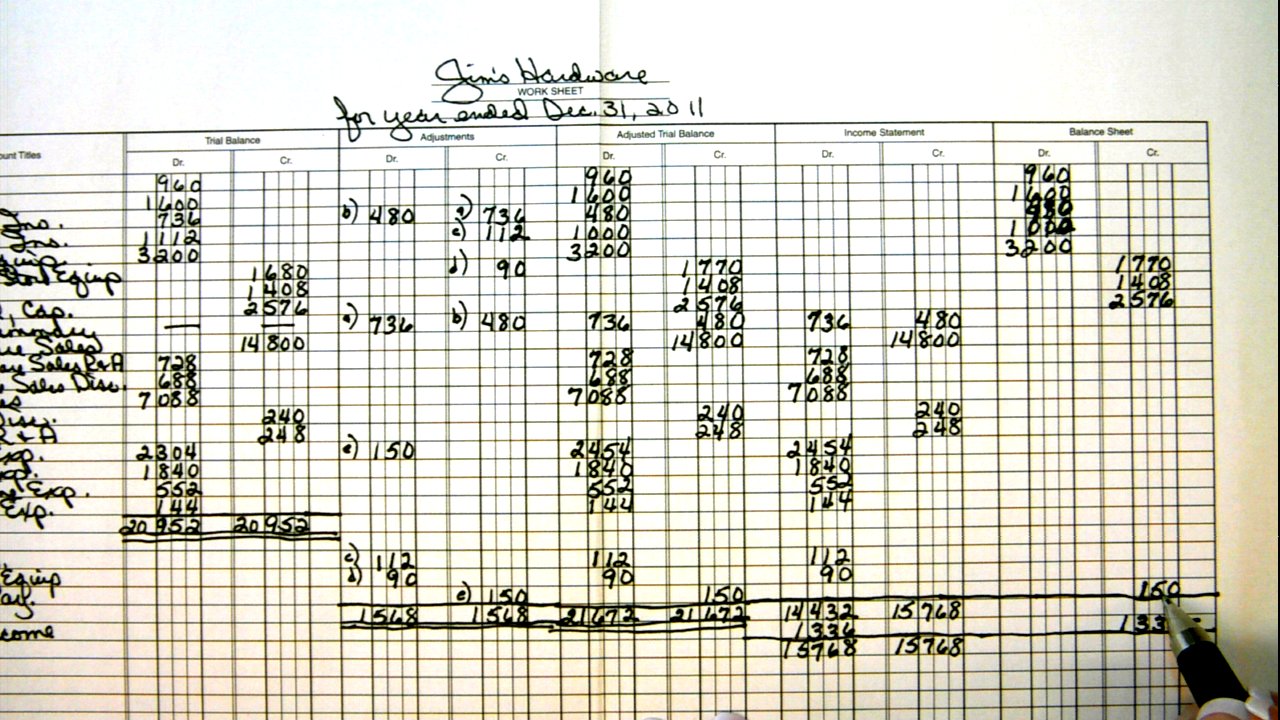 Jim's Hardware
WORK SHEET
for year ended Dec. 31, 2011
Trial Balance Adjustments Adjusted Trial Balance Income Statement Balance Sheet
unt Titles Dr. Cr. Dr. Cr. Dr. Cr. Dr. Cr. Dr. Cr.
960 960 960
1600 1600 1600
Ins. 736 b) 480 a) 736 480 480
Ins. 1112 c) 112 1000 1000
quip. 3200 3200 3200
Store Equip 1680 d) 90 1770 1770
1408 1408 1408
, Cap. 2576 2576 2576
ummary — — a) 736 b) 480 736 480 736 480
Sales 14800 14800 14800
Sales R&A 728 728 728
Sales Disc. 688 688 688
es 7088 7088 7088
Disc. 240 240 240
R&A 248 248 248
Exp. 2304 e) 150 2454 2454
xp. 1840 1840 1840
Exp. 552 552 552
Exp. 144 144 144
20952 20952
c) 112 112 112
Equip d) 90 90 90
ay. e) 150 150 150
1568 1568 21672 21672 14432 15768
come 1336 133
15768 15768